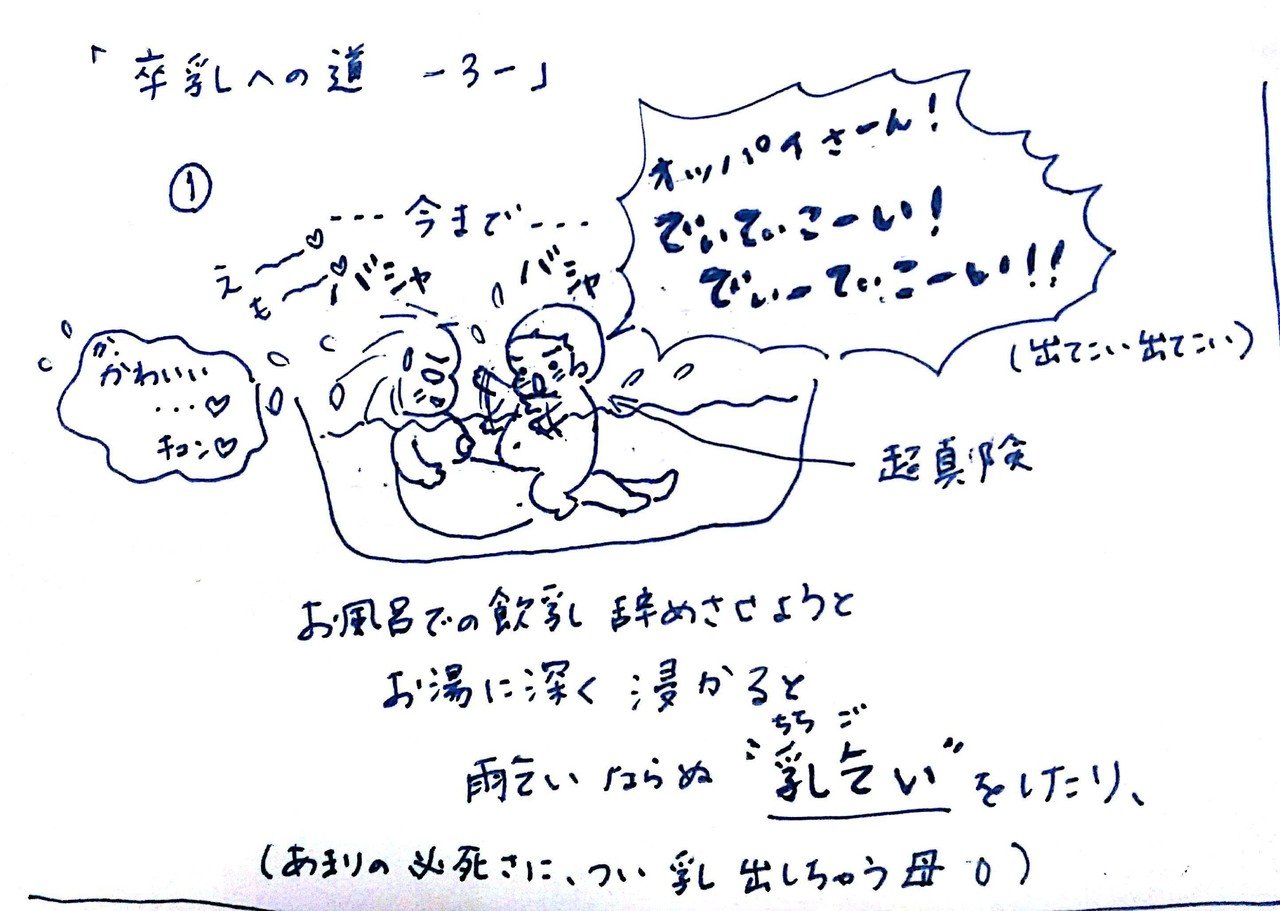 「卒乳への道 -3-」
①
---今まで---
え〜〜♡
も〜〜♡
バシャ
バシャ
オッパイさーん!
でぃてぃこーい!
でぃーてぃこーい!!
(出てこい出てこい)
か、
かわいい
...♡
チョン♡
超真険
お風呂での飲乳 辞めさせようと
お湯に深く浸かると
雨乞いならぬ
ちちご
“乳乞い”をしたり、
(あまりの必死さに、つい乳出しちゃう母0)